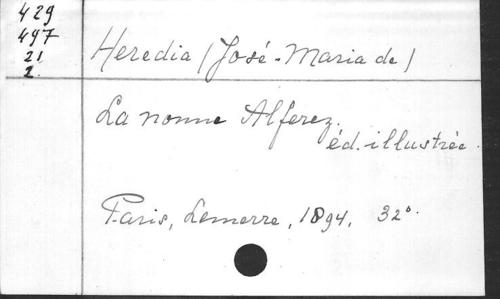 429
497
21
2.
Heredia (José-Maria de)
La nonne Alferez.
éd. illustrée.
Paris, Lemerre, 1894, 32°.